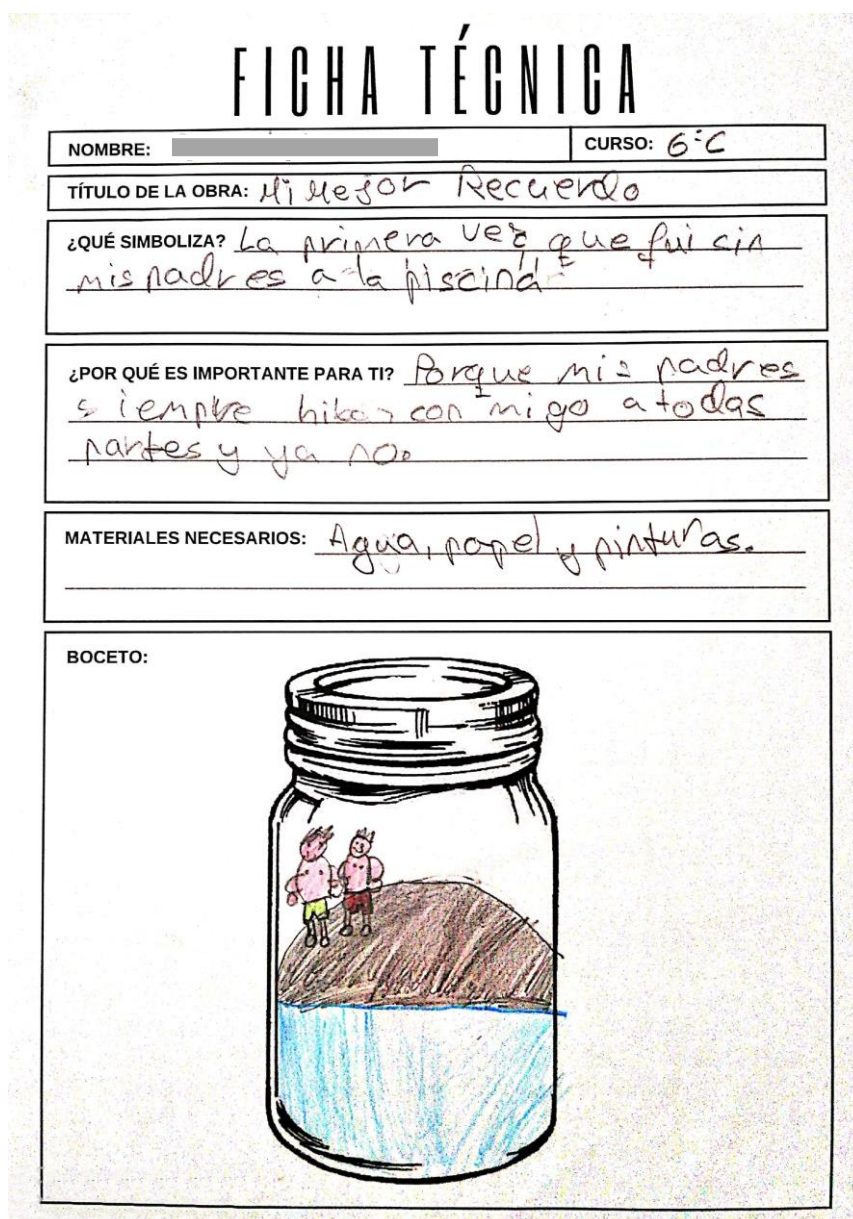 FICHA TÉCNICA
NOMBRE:
CURSO: 6ºC
TÍTULO DE LA OBRA: Mi Mejor Recuerdo
¿QUÉ SIMBOLIZA? La primera vez que fui sin
mis padres a la piscina
¿POR QUÉ ES IMPORTANTE PARA TI? Porque mis padres
siempre hiban conmigo a todas
partes y ya no.
MATERIALES NECESARIOS: Agua, papel y pinturas.
BOCETO: